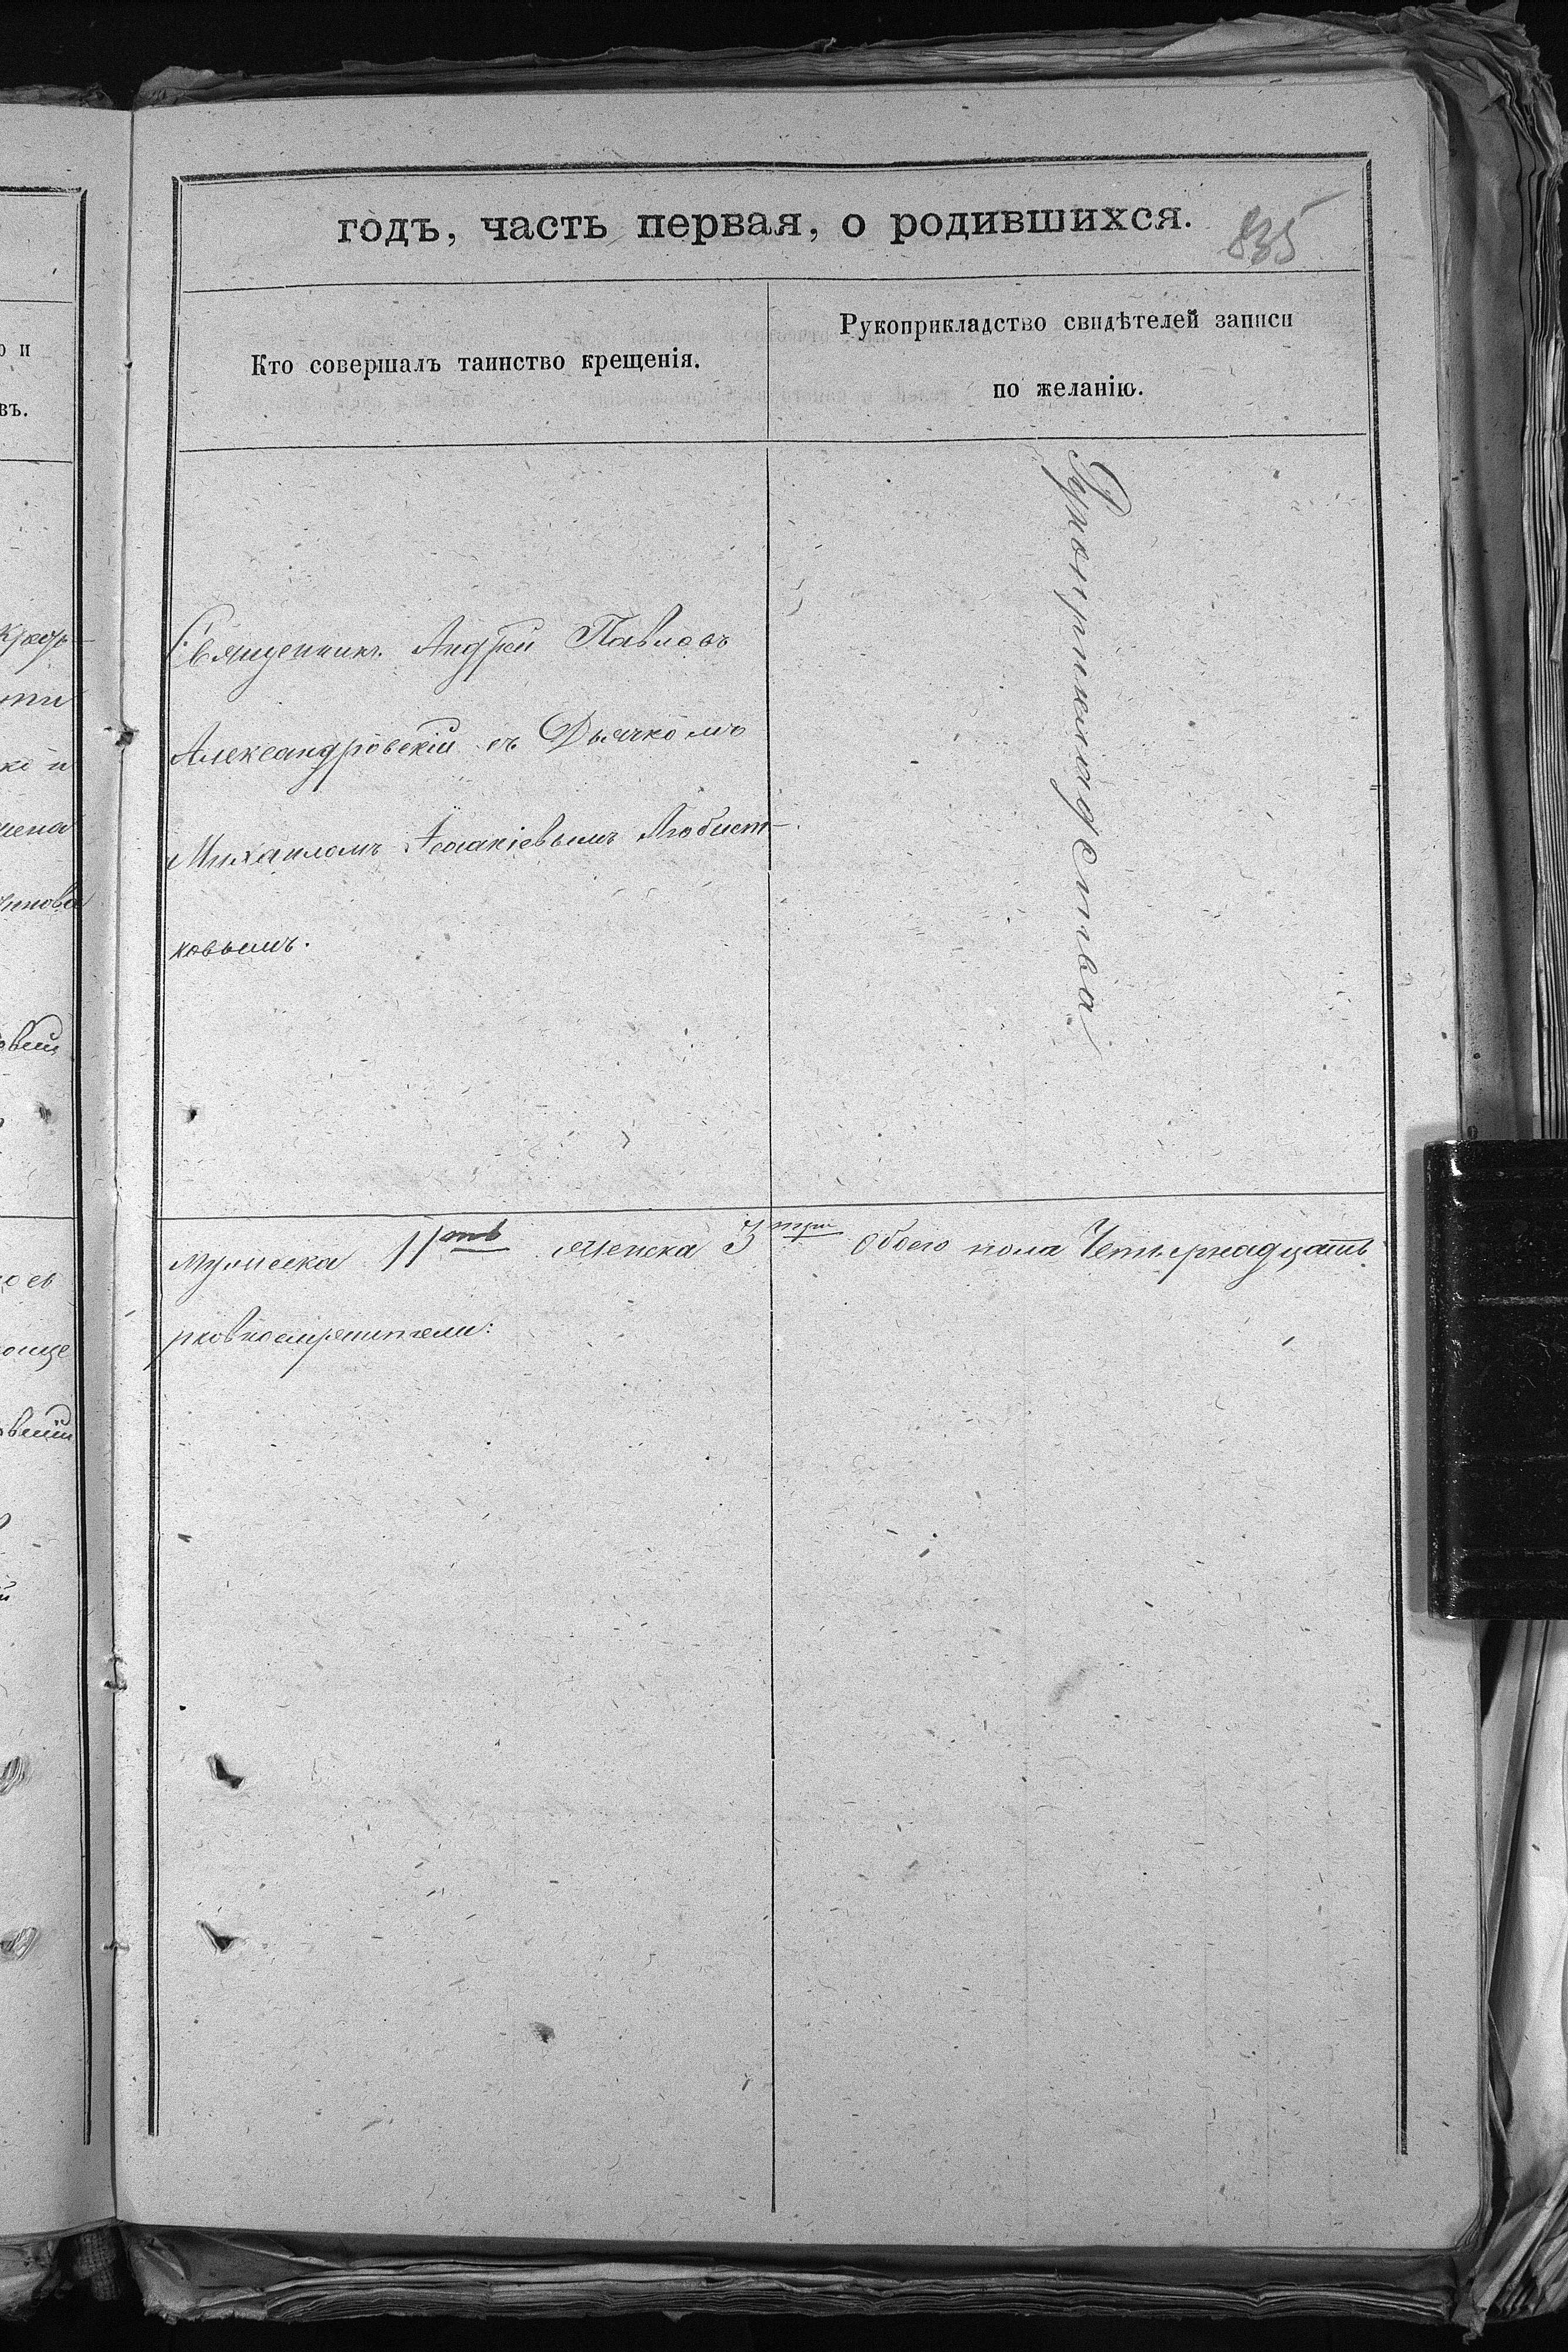 годъ, часть первая, о родившихся.
835
Кто совершалъ таинство крещенія.
Рукоприкладство свидѣтелей записи
по желанію.
Священникъ Андрей Павловъ
Александровскій съ Дьячкомъ
Михаиломъ Исаакіевымъ Любист-
ковымъ.
Рукоприкладства
мужеска 11ть женска 3 три обоего пола Четырнадцать
рковнослужители: